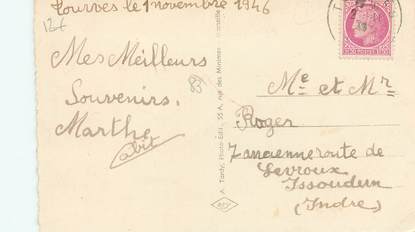 Tourves le 1 novembre 1946
Mes Meilleurs
Souvenirs.
Marthe
83
A. Tardy, Photo-Edit., 55 A, rue des Minimes
Me et Mr
Roger
7 ancienne route de
Levroux
Issoudun
(Indre)